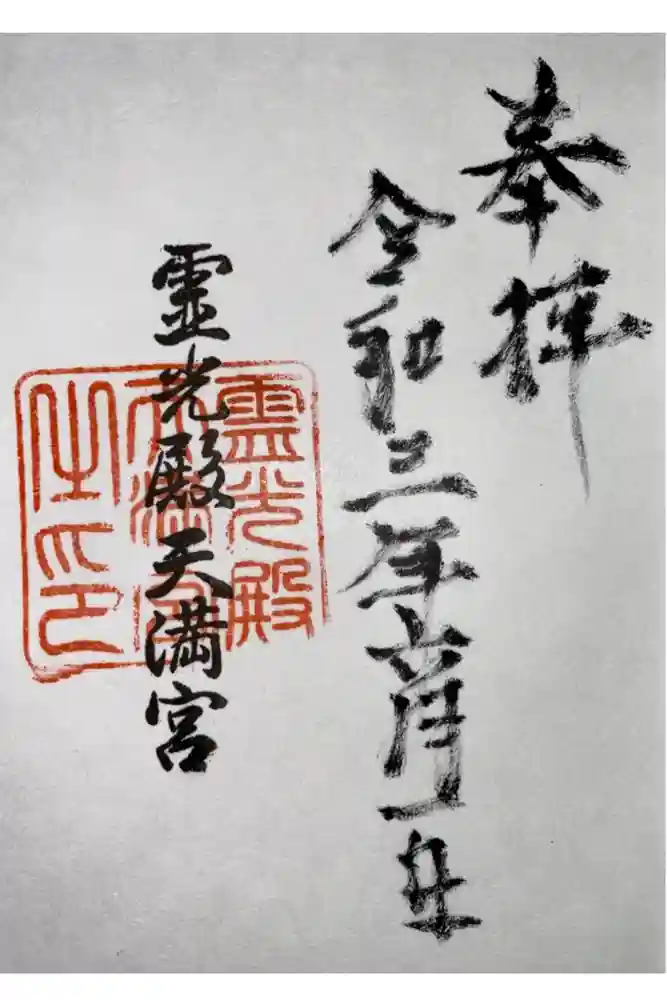 奉拝
令和三年六月一日
霊光殿天満宮
霊光殿
天満宮
之印